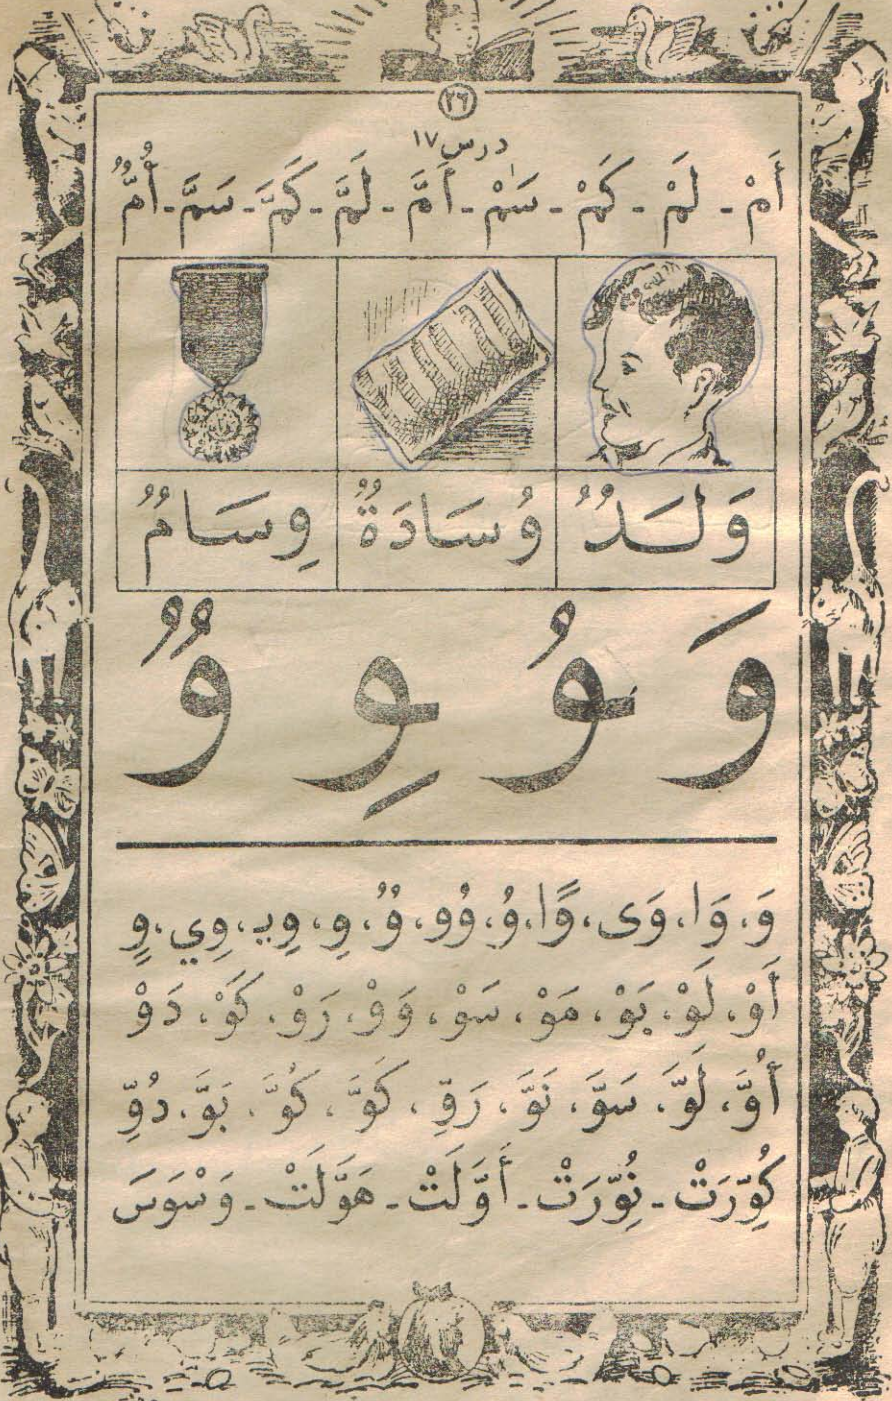 ٢٦
درس ١٧
أَمْ - لَمْ - كَمْ - سَمْ - أَمَّ - لَمَّ - كَمَّ - سَمَّ - أُمٌّ
وَلَدٌ وُسَادَةٌ وِسَامٌ
وَ وُ وِ وٌ
وَ، وَا، وَى، وًا، وُ، وُو، وٌ، وِ، وِيـ، وِي، وٍ
أَوْ، لَوْ، بَوْ، مَوْ، سَوْ، وَوْ، رَوْ، كَوْ، دَوْ
أُوَّ، لَوَّ، سَوَّ، نَوَّ، رَوِّ، كَوَّ، كُوَّ، بَوَّ، دُوِّ
كُوِّرَتْ - نُوِّرَتْ - أَوَّلَتْ - هَوَّلَتْ - وَسْوَسَ